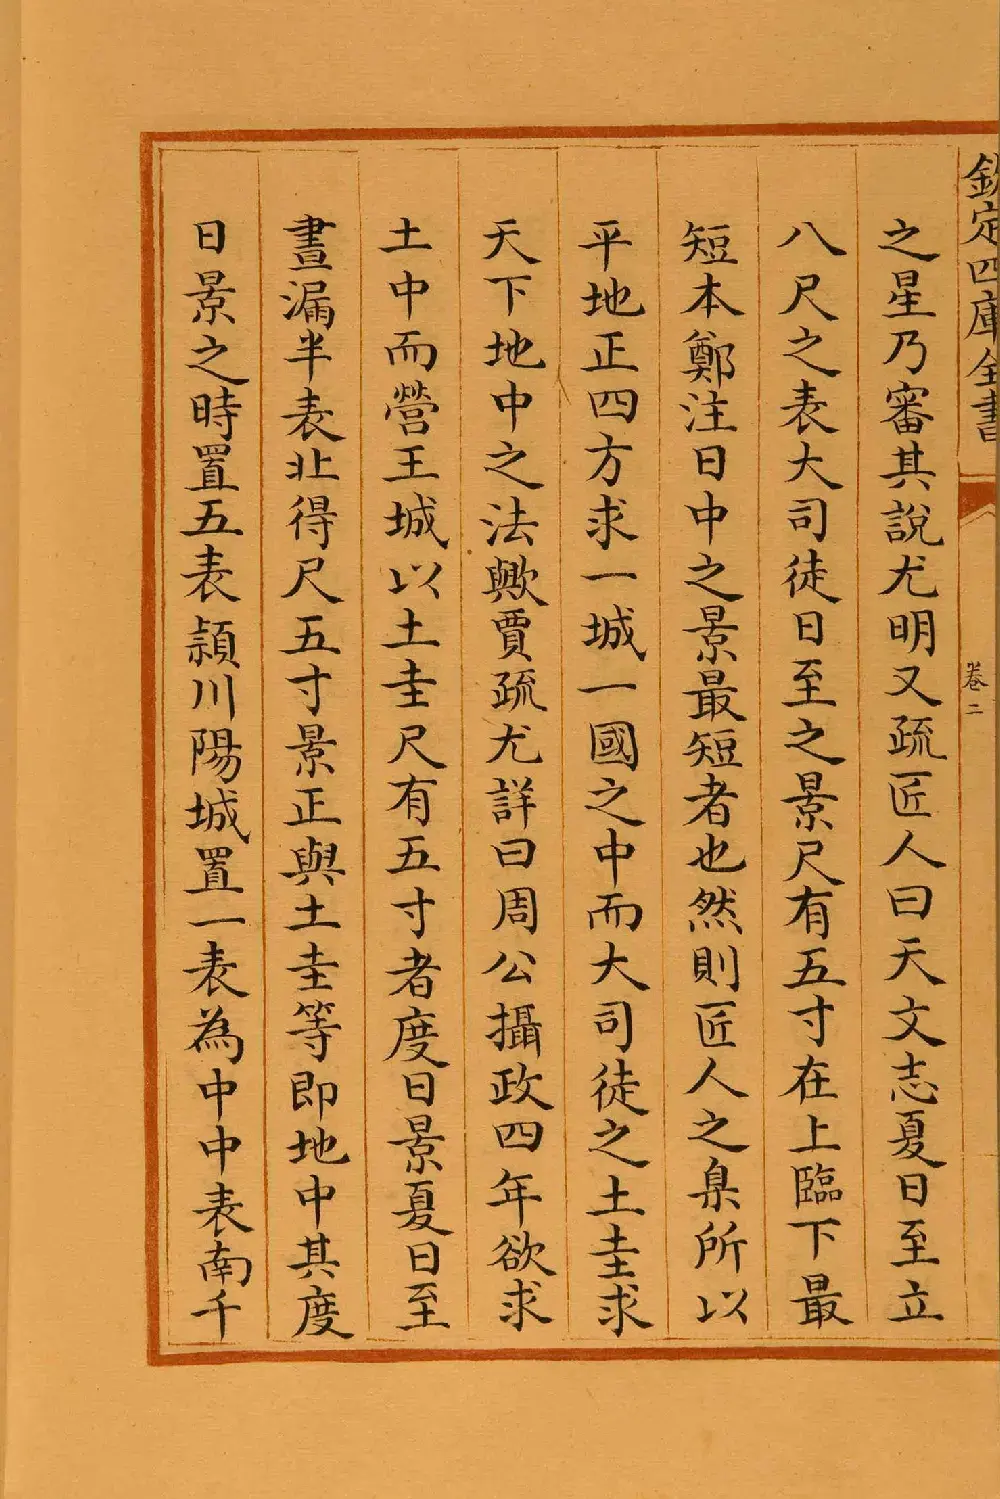 欽定四庫全書
卷二
之星乃審其說尤明又疏匠人曰天文志夏日至立
八尺之表大司徒日至之景尺有五寸在上臨下最
短本鄭注日中之景最短者也然則匠人之臬所以
平地正四方求一城一國之中而大司徒之土圭求
天下地中之法歟賈疏尤詳曰周公攝政四年欲求
土中而營王城以土圭尺有五寸者度日景夏日至
晝漏半表北得尺五寸景正與土圭等即地中其度
日景之時置五表潁川陽城置一表為中中表南千